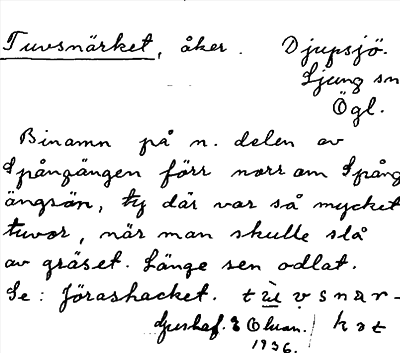 Tuvsnärket, åker. Djupsjö.
Ljung sn
Ögl.
Binamn på n. delen av
Spångängen förr norr om Spång
ängsån, ty där var så mycket
tuvor, när man skulle slå
av gräset. Länge sen odlat.
Se: Jörashacket. tu̇vsnar-
E Olsson. / kət
1936.